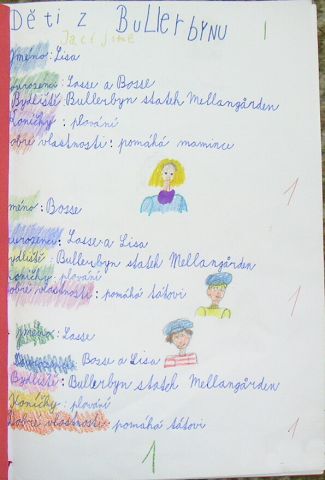 Děti z Bullerbynu 1
Jací jsme
Jméno: Lisa
Sourozenci: Lasse a Bosse
Bydliště: Bullerbyn statek Mellangården
Koníčky: plování
Dobré vlastnosti: pomáhá mamince
1
Jméno: Bosse
Sourozenci: Lasse a Lisa
Bydliště: Bullerbyn statek Mellangården
Koníčky: plování
Dobré vlastnosti: pomáhá tátovi
1
Jméno: Lasse
Sourozenci: Bosse a Lisa
Bydliště: Bullerbyn statek Mellangården
Koníčky: plování
Dobré vlastnosti: pomáhá tátovi
1
1